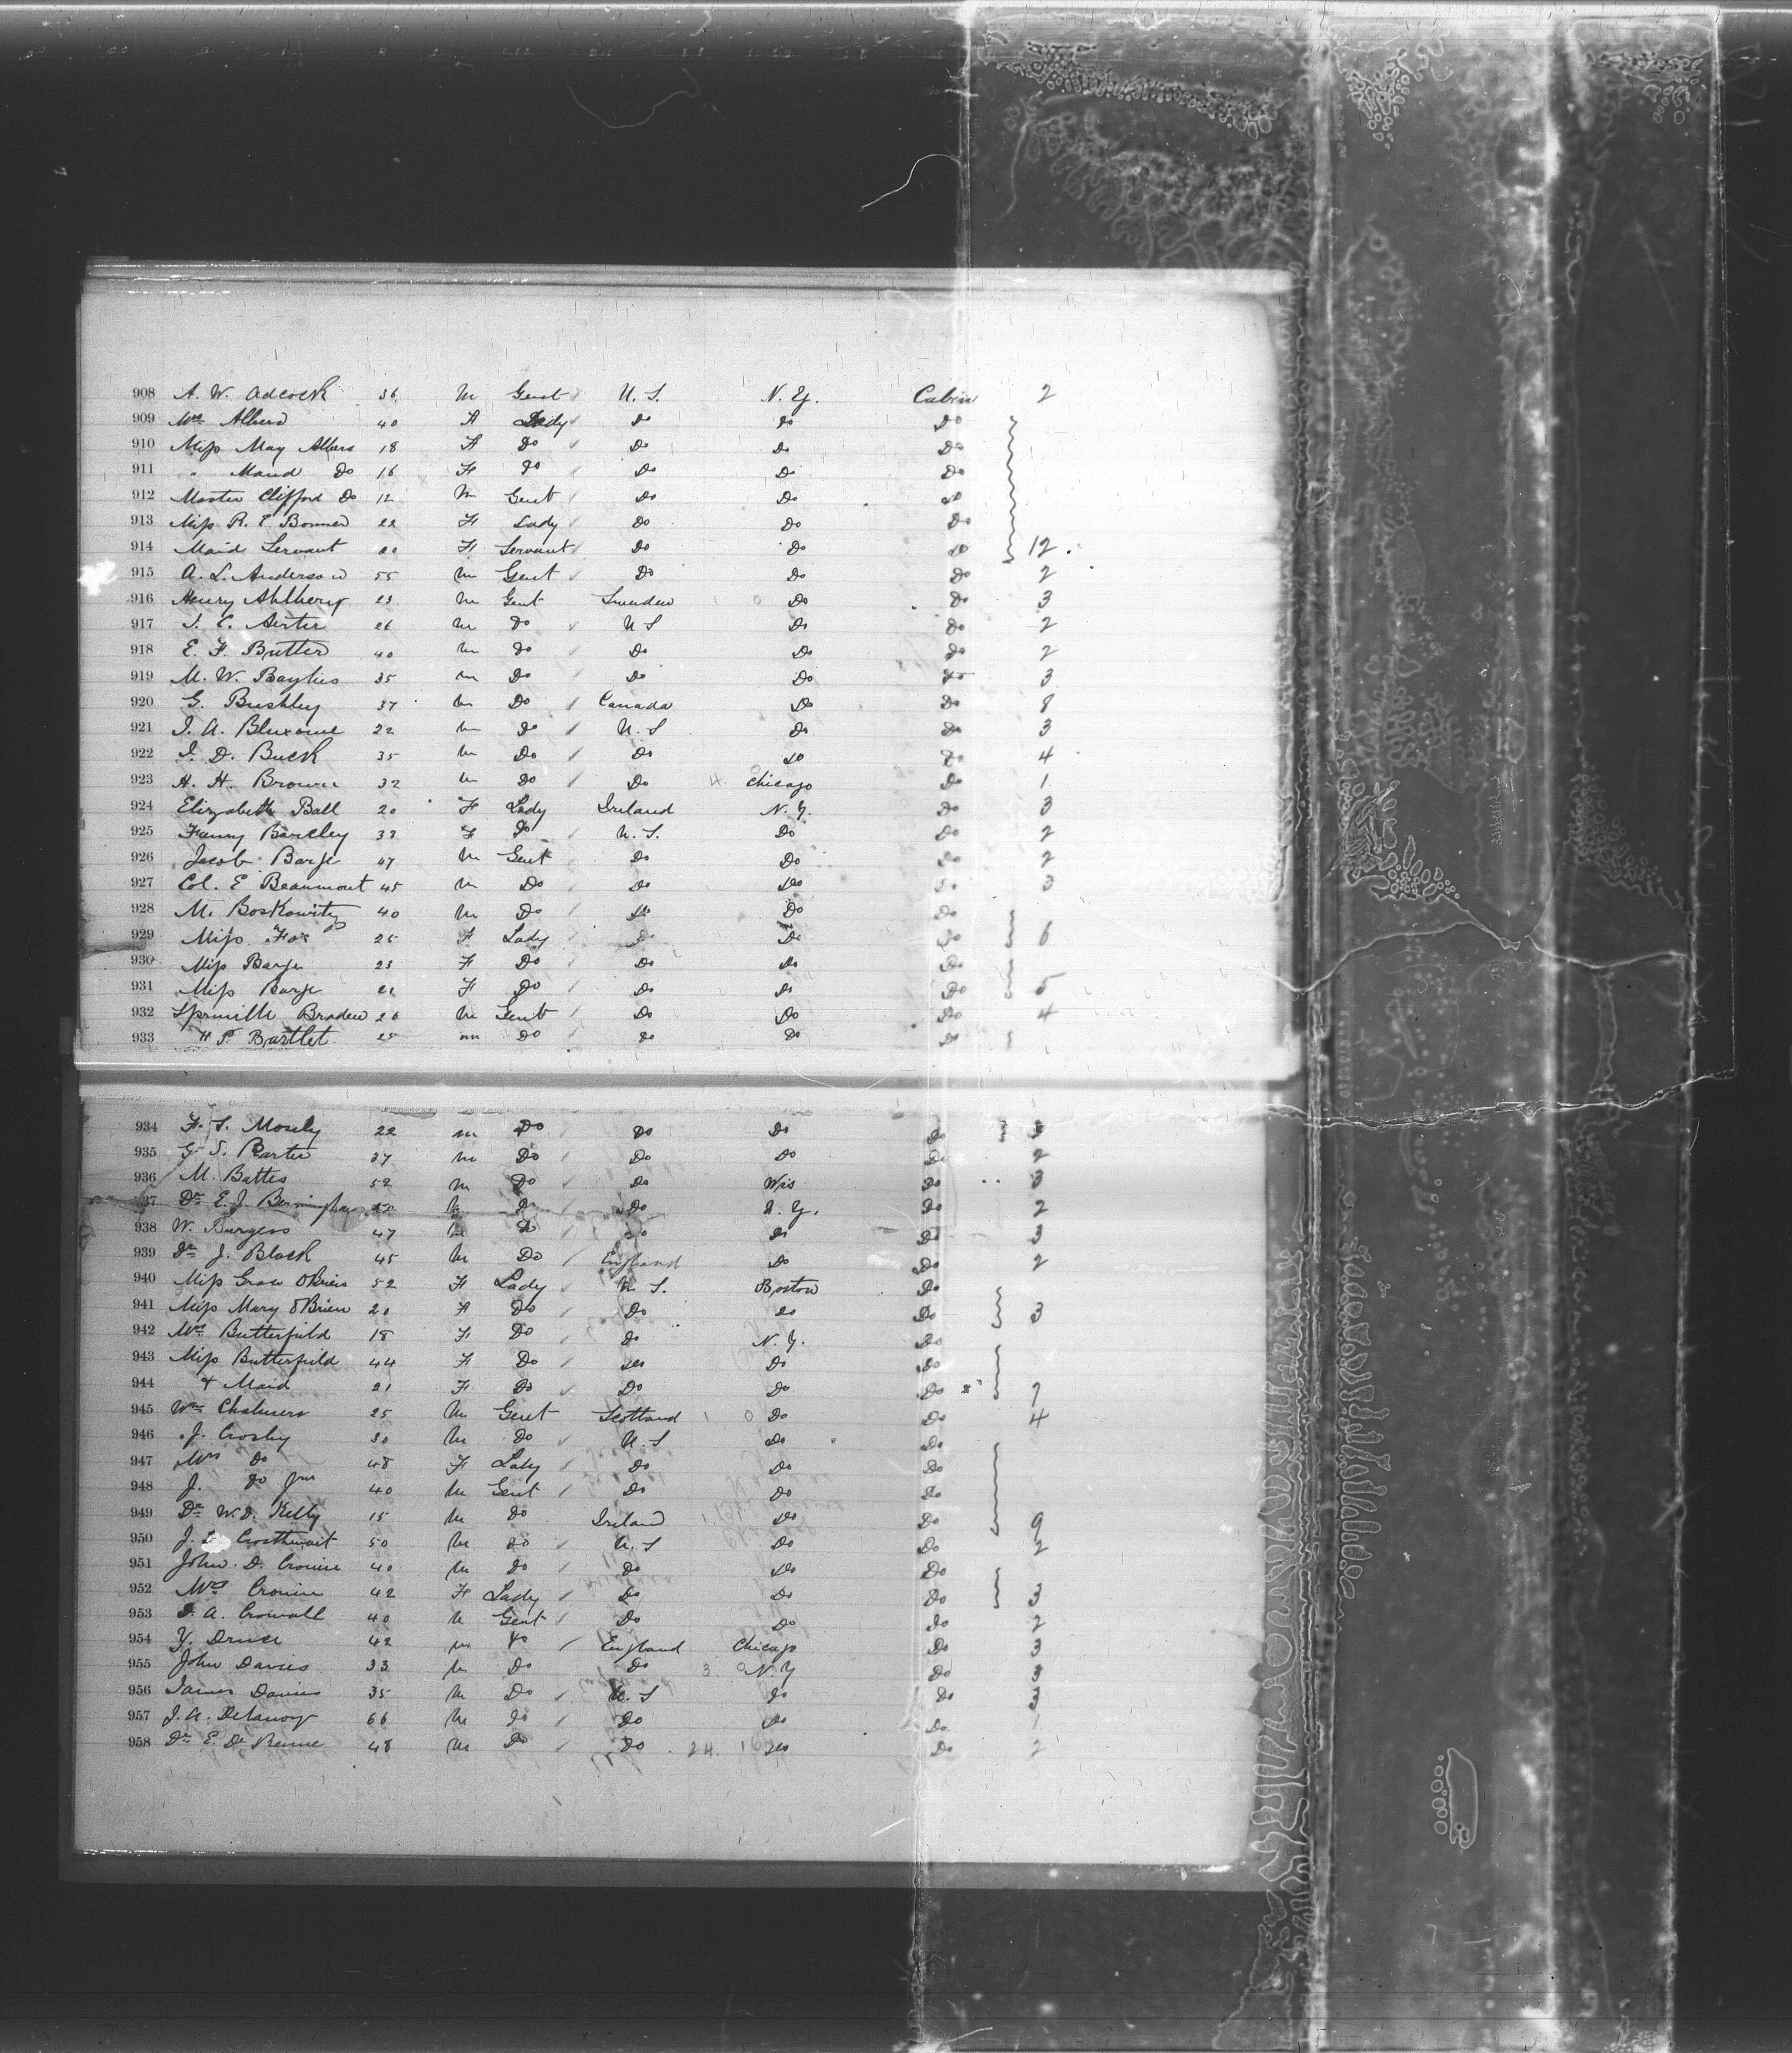 908 A. W. Adcock 36 M Gent U. S. N. Y. Cabin 2
909 Mrs Albers 40 F Lady Do Do Do
910 Miss May Albers 18 F Do Do Do Do
911 " Maud Do 16 F Do Do Do Do
912 Master Clifford Do 12 M Gent Do Do Do
913 Miss R. E. Bonner 22 F Lady Do Do Do
914 Maid Servant 20 F Servant Do Do Do 12.
915 A. L. Anderson 55 M Gent Do Do Do 2
916 Henry Ahlberg 23 M Gent Sweeden 1 0 Do Do 3
917 26 M Do U S Do Do 2
918 E. F. Butter 40 M Do Do Do Do 2
919 M. W. Baylies 35 M Do Do Do Do 3
920 G. Bushley 37 M Do Canada Do Do 8
921 J. A. Bluxome 22 M Do U. S Do Do 3
922 J. D. Buck 35 M Do Do Do Do 4
923 H. H. Brown 32 M Do Do 4 Chicago Do 1
924 Elizabeth Ball 20 F Lady Ireland N. Y. Do 3
925 Fanny Barcley 33 F Do U. S. Do Do 2
926 Jacob Barje 47 M Gent Do Do Do 2
927 Col. E Beaumont 45 M Do Do Do Do 3
928 M. Boskowitz 40 M Do Do Do Do
929 Miss Fox 25 F Lady Do Do Do 6
930 Miss Barje 23 F Do Do Do Do
931 Miss Barje 21 F Do Do Do Do 5
932 Braden 26 M Gent Do Do Do 4
933 H P. Bartlet 25 M Do Do Do Do
934 F. S. Mosely 22 M Do Do Do Do
935 G. S. Barter 37 M Do Do Do Do 2
936 M. Battes 52 M Do Do Wis Do 3
937 Dr E. J. Bermingham M Do Do N. Y. Do 2
938 W. Burgess 47 M Do Do Do Do 3
939 Dr J. Black 45 M Do England Do Do 2
940 Miss Grace OBrien 52 F Lady U. S. Boston Do
941 Miss Mary OBrien 20 F Do Do Do Do 3
942 Mrs Butterfield 18 F Do Do N. Y. Do
943 Miss Butterfield 44 F Do Do Do Do
944 & Maid 21 F Do Do Do Do 7
945 Wm Chalmers 25 M Gent Scotland 1 0 Do Do 4
946 J. Crosby 30 M Do U. S Do Do
947 Mrs Do 48 F Lady Do Do Do
948 J. Do Jnr 40 M Gent Do Do Do
949 Dr W. D. Kelly 15 M Do Ireland 1 Do Do 9
950 J. Crosthwait 50 M Do U. S Do Do 2
951 John. D. Cronin 40 M Do Do Do Do
952 Mrs Cronin 42 F Lady Do Do Do 3
953 A. Crowall 40 M Gent Do Do Do 2
954 Y. Druce 42 M Do England Chicago Do 3
955 John Davies 33 M Do Do 3. 0 N. Y Do 3
956 James Davies 35 M Do U. S Do Do 3
957 J. A. Delanoy 66 M Do Do Do Do 1
958 Dr E. De Benne 48 M Do Do 24. Do Do 2